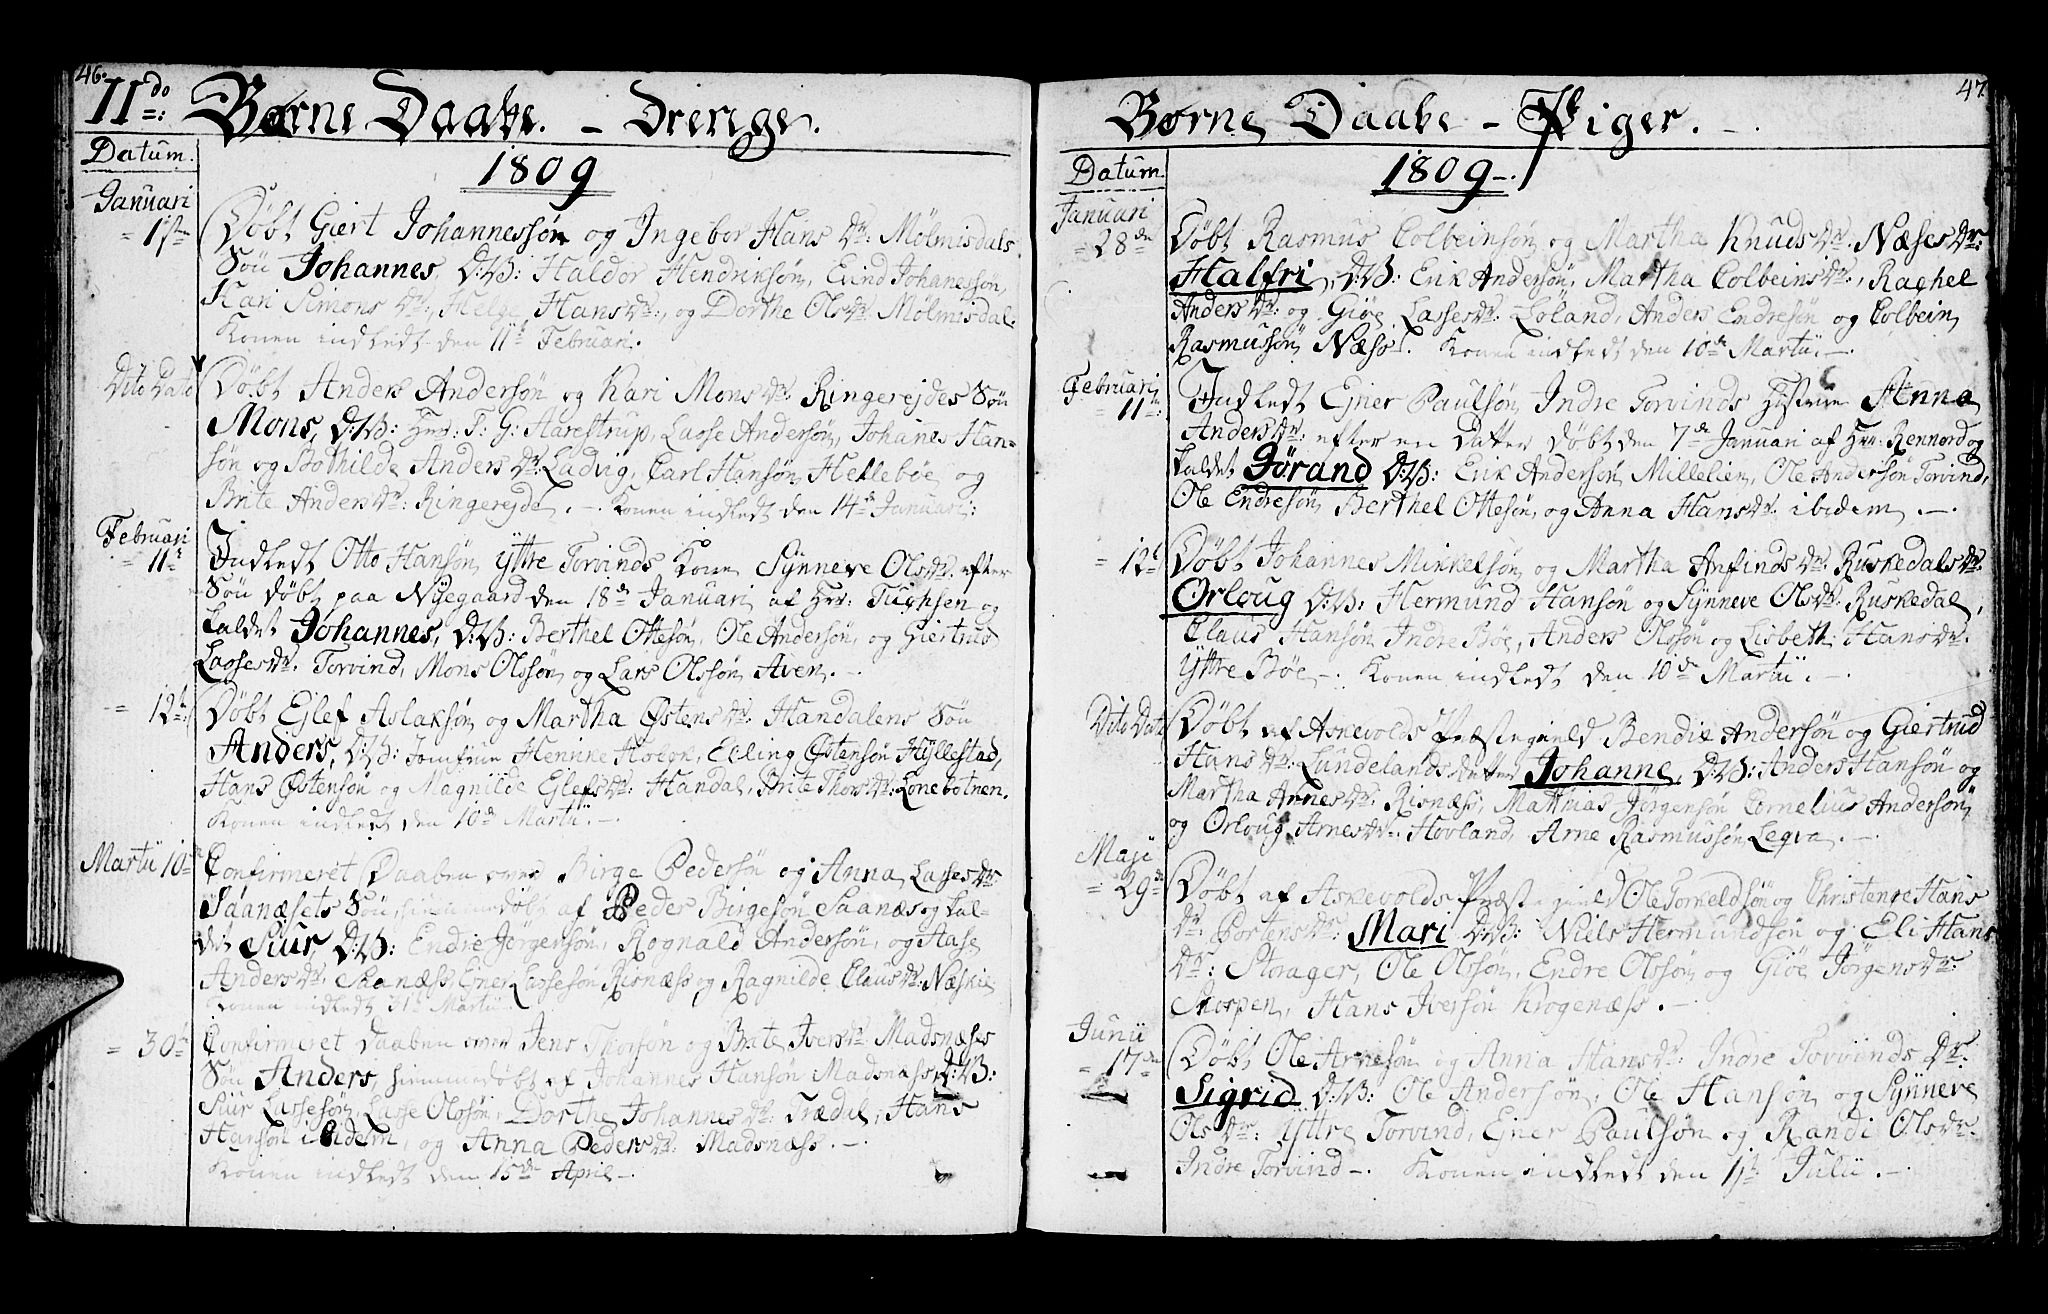 46.
IIdo: Børne Daabe. - Drenge.
Datum.
1809
Januari
= 1ste
Døbt Giert Johannessøn og Ingebor Hans Dr: Mölmisdals
Søn Johannes, D:W: Haldor Hendriksøn, Eivind Johannessøn,
Kari Simons Dr:, Helge Hans Dr:, og Dorthe Ols Dr: Mölmisdal.
Konen indledt den 11te Februari.
Dito Dato
Døbt Anders Andersøn og Kari Mons Dr: Ringerejdes Søn
Mons, D:W: Hr: F: G: Aarestrup, Lasse Andersøn, Johanes Han-
søn og Bothilde Anders Dr: Ladvig, Carl Hansøn Hellebøe og
Brite Anders Dr: Ringerejde. - Konen indledt den 14de Januari:
Februari
= 11te
Indledt Otto Hansøn Yttre Torvinds Kone Synneve Ols Dr: efter
Søn døbt paa Nyegaard den 18de Januari af Hr: Tuchsen og
kaldet Johannes, D:W: Berthel Ottesøn, Ole Andersøn, og Giertrud
Lasses Dr: Torvind, Mons Olssøn og Lars Olssøn Aven. -
= 12te
Døbt Ejlef Aslaksøn og Martha Østens Dr: Handalens Søn
Anders, D:W: Jomfrue Henrike Holck, Elling Østensøn Hyllestad,
Hans Østensøn og Magnilde Eglefs Dr: Handal, Brite Thors Dr: Lonebotnen.
Konen indledt den 10de Martii. -
Martii 10de
Confirmeret Daaben over Birge Pedersøn og Anna Lasses Dr:
Saanæsets Søn, hiemmedøbt af Peder Birgesøn Saanæs og kal-
det Siur, D:W: Endre Jørgensøn, Rognald Andersøn, og Aase
Anders Dr: Skanæss, Ener Lassesøn Risnæss og Ragnilde Claus Dr: Næskie
Konen indledt 31te Martii
= 30te
Confirmeret Daaben over Jens Thorsøn og Brite Ivers Dr: Madsnæses
Søn Anders, hiemmedøbt af Johannes Hansøn Madsnæss D:W:
Siur Lassesøn, Lasse Olssøn, Dorthe Johannes Dr: Trædal, Hans
Hansøn ibidem, og Anna Peders Dr: Madsnæss. -
Konen indledt den 15de April -.
47.
Børne Daabe - Piger. -
Datum.
1809 -
Januari
= 28de
Døbt Rasmus Colbeinsøn og Martha Knuds Dr: Næses Dr:
Halfri, D:W: Erik Andersøn, Martha Colbeins Dr:, Rachel
Anders Dr: og Giøe Lasses Dr: Løland, Anders Endresøn og Colbein
Rasmussøn Næss. Konen indledt den 10de Martii. -
Februari
= 11te:
Indledt Ejner Paulsøn Indre Torvinds Hustrue Anna
Anders Dr: efter en Datter døbt den 7de Januari af Hr: Rennord og
kaldet Jørand D:W: Erik Andersøn Millelien, Ole Andersøn Torvind,
Ole Endresøn, Berthel Ottesøn, og Anna Hans Dr: ibidem. -
= 12te
Døbt Johannes Mikkelsøn og Martha Anfinds Dr: Ruskedals Dr:
Orloug D:W: Hermund Hansøn og Synneve Ols Dr: Ruskedal,
Claus Hansøn Indre Bøe, Anders Olssøn og Lisbeth Hans Dr:
Yttre Bøe -. Konen indledt den 10de Martii. -
Dito Dato
Døbt af Askevolds Præstegield Bendix Andersøn og Giertrud
Hans Dr: Lundelands Datter Johanne, D:W: Anders Hansøn og
Martha Arnes Dr: Risnæss, Matthias Jørgensøn Cornelius Andersøn
og Orloug Arnes Dr: Hovland, Arne Rasmussøn Leqva. -
Maji
= 29de
Døbt af Askevolds Præstegield Ole Torkeldsøn og Christense Hans
Dr: Portens Dr: Mari D:W: Niels Hermundsøn og Eli Hans
Dr: Storager, Ole Olssøn, Endre Olssøn og Giøe Jørgens Dr:
Skorpen, Hans Iversøn Krogenæss. -
Junii
= 17de
Døbt Ole Arnesøn og Anna Hans Dr: Indre Torvinds Dr:
Sigrid D:W: Ole Andersøn, Ole Hansøn og Synneve
Ols Dr: Yttre Torvind, Ejner Paulsøn og Randi Ols Dr:
Indre Torvind -. Konen indledt den 1ste Julii. -